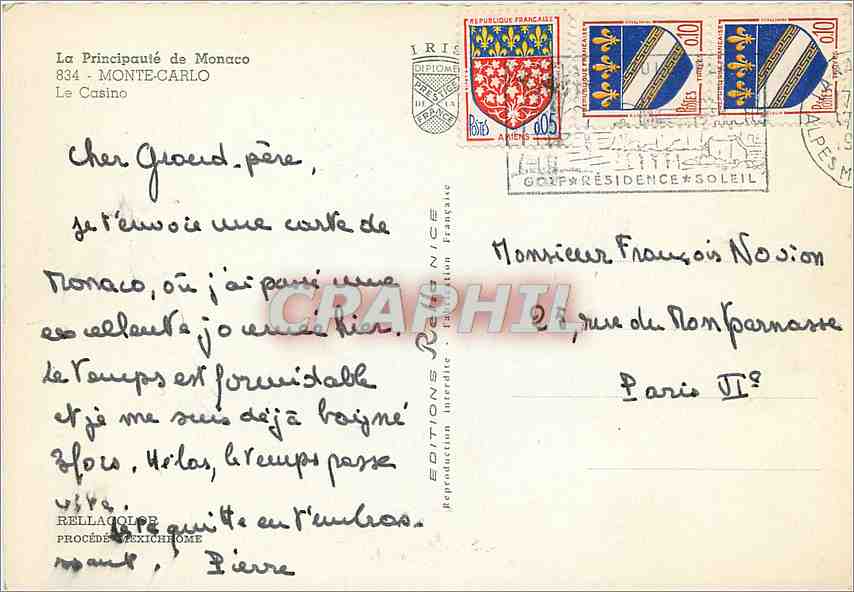 La Principauté de Monaco
834 - MONTE-CARLO
Le Casino
IRIS
DIPLOME
PRESTIGE
DE LA
FRANCE
REPUBLIQUE FRANÇAISE
POSTES
0,05
AMIENS
REPUBLIQUE FRANÇAISE
0,10
POSTES
REPUBLIQUE FRANÇAISE
0,10
POSTES
GOLF * RÉSIDENCE * SOLEIL
ALPES M
Cher Grand-père,
je t'envoie une carte de
Monaco, où j'ai passé une
excellente journée hier.
Le temps est formidable
et je me suis déjà baigné
3 fois. Hélas, le temps passe
vite
je te quitte en t'embras-
sant. Pierre
RELLACOLOR
PROCÉDÉ MEXICHROME
EDITIONS Rella NICE
Reproduction interdite - Fabrication Française
Monsieur François Novion
27, rue du Montparnasse
Paris VIe
CRAPHIL